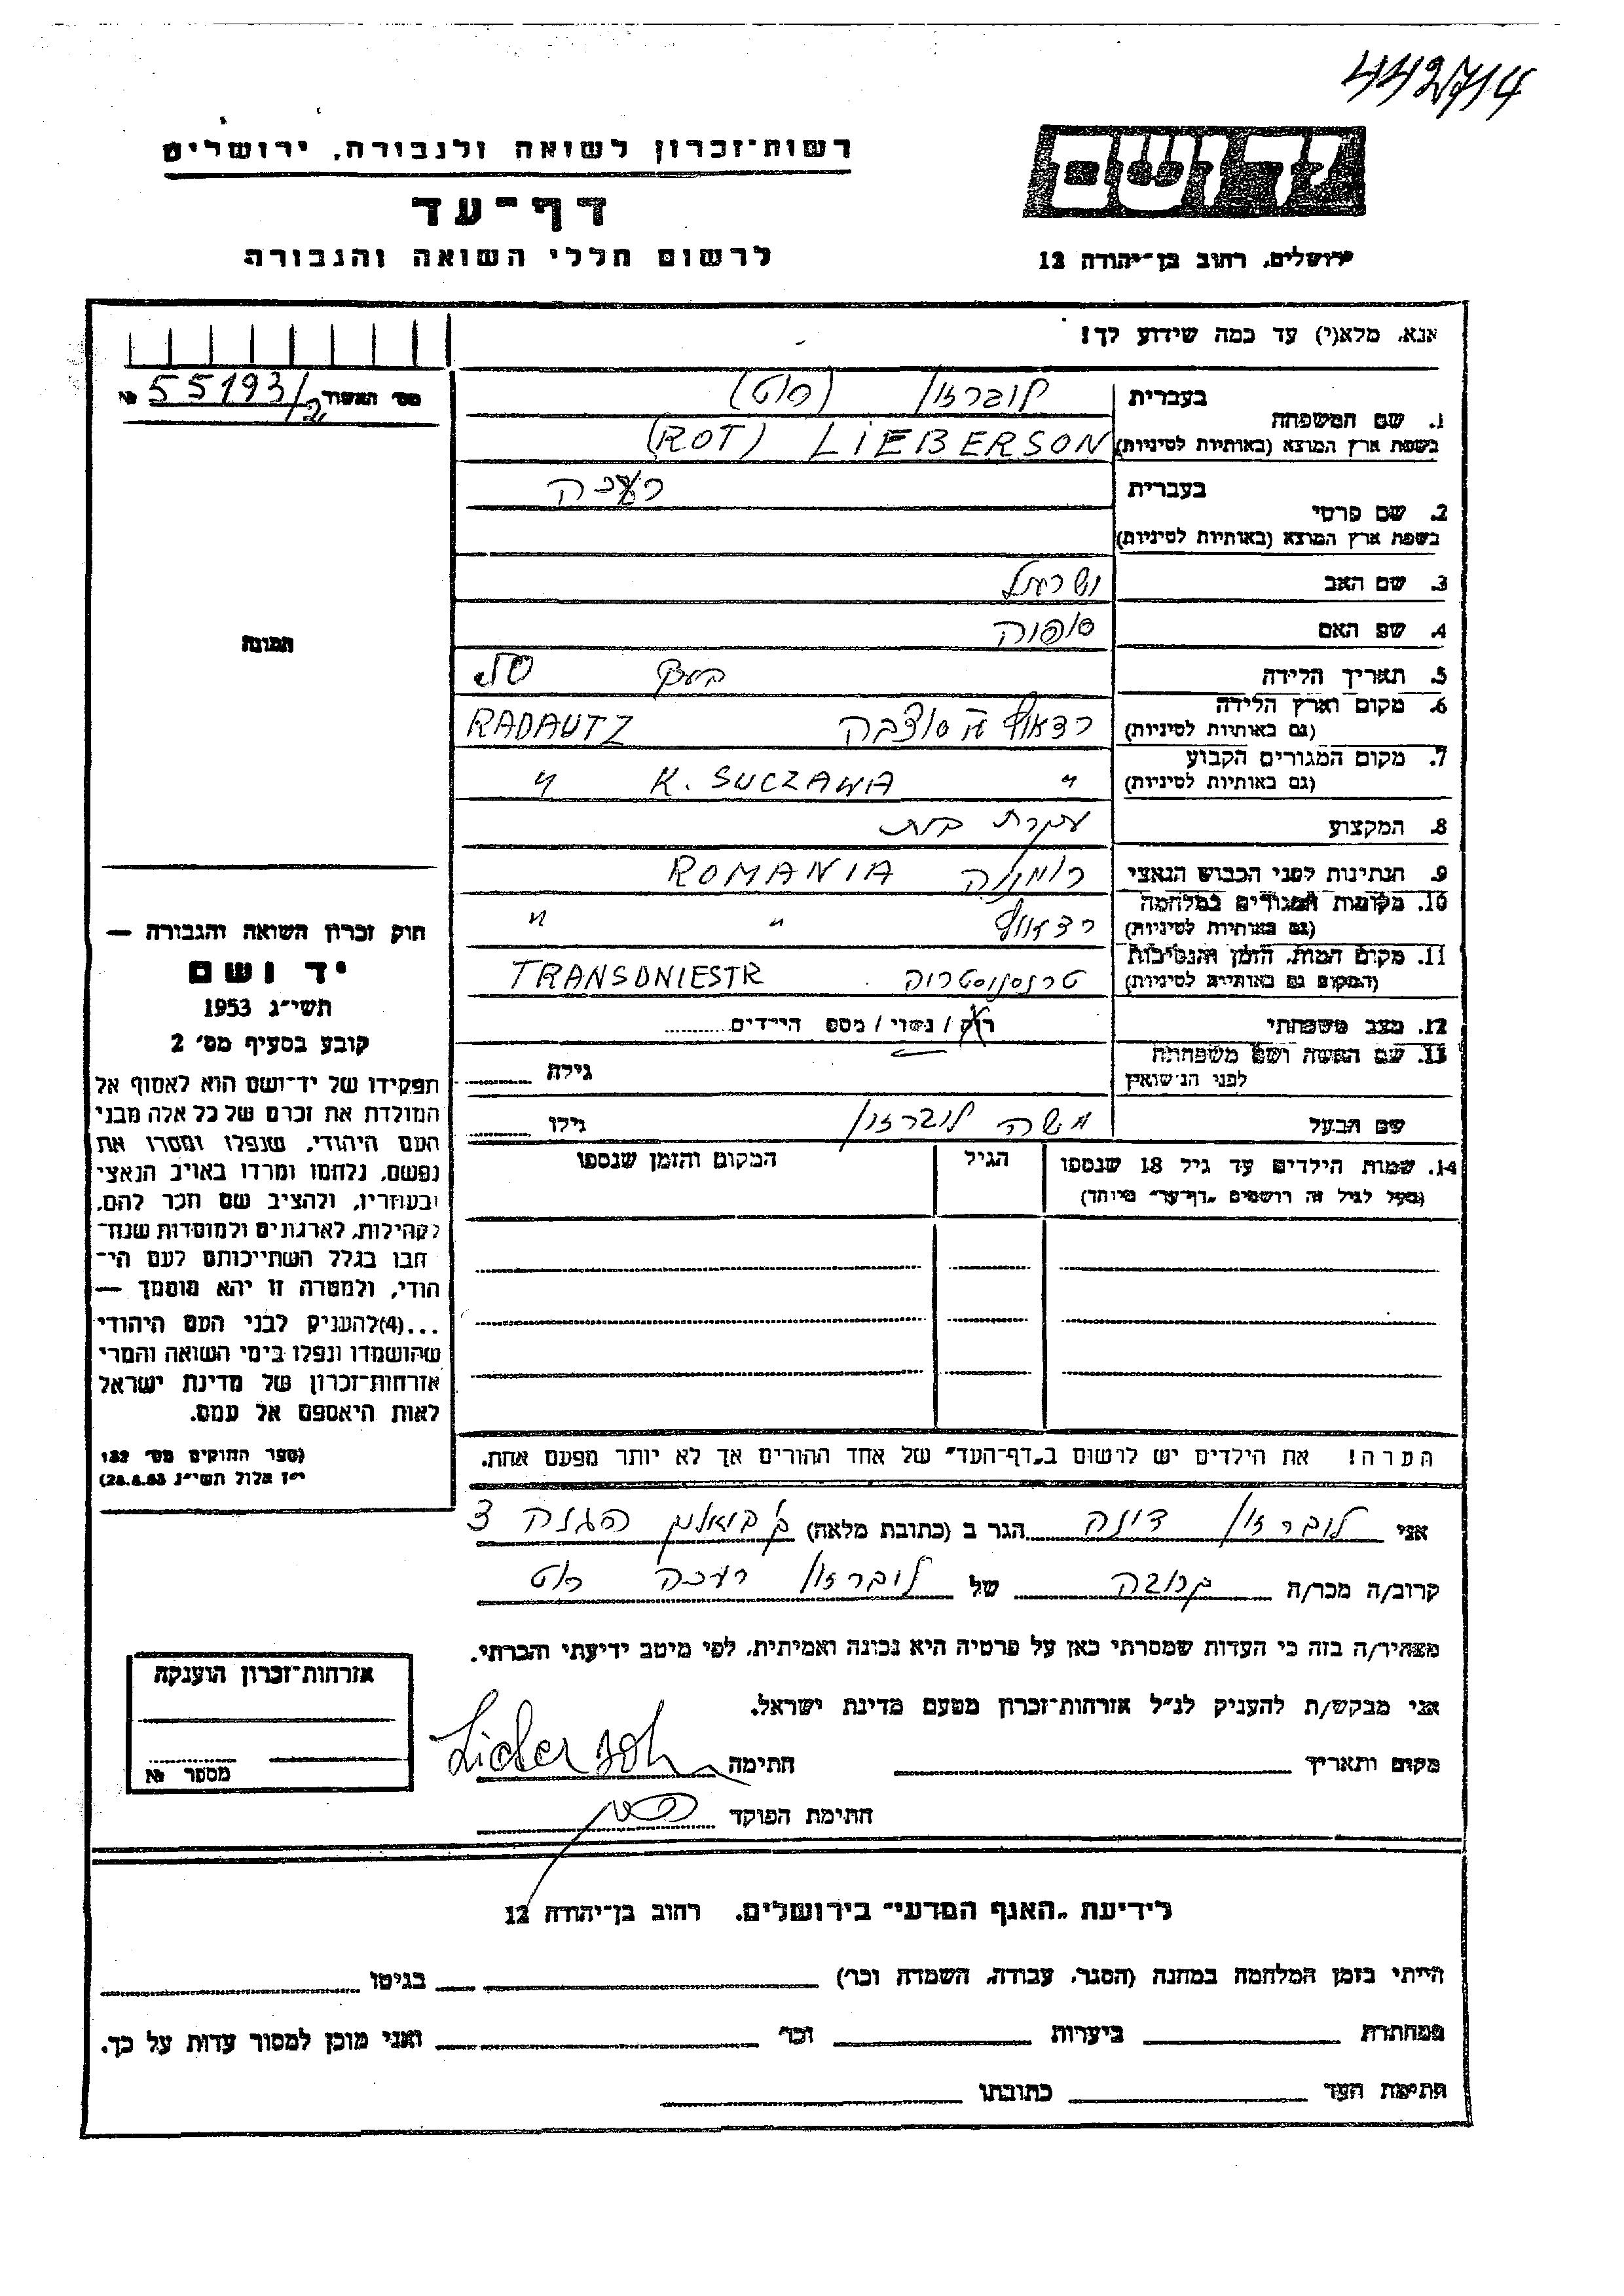 442714
רשות־זכרון לשואה ולגבורה, ירושלים
דף־עד
לרשום חללי השואה והגבורה
יד ושם
ירושלים, רחוב בן־יהודה 12
אנא, מלא(י) עד כמה שידוע לך!
מס׳ האשור № 55193/2
1. שם המשפחה
בעברית ליברזון (רוט)
בשפת ארץ המוצא (באותיות לטיניות) LIEBERSON (ROT)
2. שם פרטי
בעברית
בשפת ארץ המוצא (באותיות לטיניות)
3. שם האב ישראל
4. שם האם
5. תאריך הלידה
6. מקום וארץ הלידה
(גם באותיות לטיניות) רדאוץ RADAUTZ
7. מקום המגורים הקבוע
(גם באותיות לטיניות) " K. SUCZAWA "
8. המקצוע עקרת בית
9. הנתינות לפני הכבוש הנאצי רומניה ROMANIA
10. מקומות המגורים במלחמה
(גם באותיות לטיניות) רדאוץ " "
11. מקום המות, הזמן והנסיבות
(המקום גם באותיות לטיניות) טרנסניסטריה TRANSDNIESTR
12. מצב משפחתי רוק / נשוי / מספ הילדים
13. שם האשה ושם משפחתה
לפני הנישואין גילה
שם הבעל משה ליברזון גילו
14. שמות הילדים עד גיל 18 שנספו הגיל המקום והזמן שנספו
(מעל לגיל זה רושמים „דף־עד״ מיוחד)
תמונה
חוק זכרון השואה והגבורה —
יד ושם
תשי״ג 1953
קובע בסעיף מס׳ 2
תפקידו של יד־ושם הוא לאסוף אל
המולדת את זכרם של כל אלה מבני
העם היהודי, שנפלו ומסרו את
נפשם, נלחמו ומרדו באויב הנאצי
ובעוזריו, ולהציב שם וזכר להם,
לקהילות, לארגונים ולמוסדות שנח־
רבו בגלל השתייכותם לעם הי־
הודי, ולמטרה זו יהא מוסמך —
...(4)להעניק לבני העם היהודי
שהושמדו ונפלו בימי השואה והמרי
אזרחות־זכרון של מדינת ישראל
לאות היאספם אל עמם.
(ספר החוקים מס׳ 132
י״ז אלול תשי״ג 28.8.53)
הערה! את הילדים יש לרשום ב„דף־העד״ של אחד ההורים אך לא יותר מפעם אחת.
אני ליברזון דינה הגר ב (כתובת מלאה) הגנה 3
קרוב/ה מכר/ה קרובה של ליברזון רוט
מצהיר/ה בזה כי העדות שמסרתי כאן על פרטיה היא נכונה ואמיתית, לפי מיטב ידיעתי והכרתי.
אני מבקש/ת להעניק לנ״ל אזרחות־זכרון מטעם מדינת ישראל.
מקום ותאריך חתימה Lieberson
חתימת הפוקד
אזרחות־זכרון הוענקה
מספר №
לידיעת „האגף המדעי״ בירושלים, רחוב בן־יהודה 12
הייתי בזמן המלחמה במחנה (הסגר, עבודה, השמדה וכר׳) בגיטו
במחתרת ביערות וכר׳ ואני מוכן למסור עדות על כך.
חתימת העד כתובתו